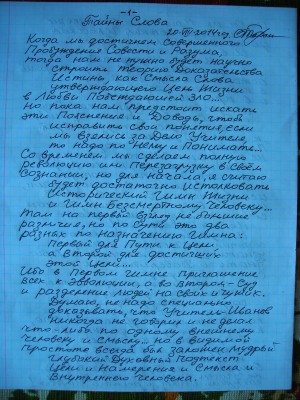 -1-
Тайны Слова
20.VIII.2014 года
Когда мы достигнем Совершенного
Пробуждения Совести и Разума,
тогда нам не нужно будет научно
строить теорию Доказательства
Истины, как Смысла Слова
утверждающего Цель Жизни
в Любви Побеждающей Зло...
Но пока нам предстоит искать
эти Пояснения и Доводы, чтобы
исправить свои понятия, если
мы взялись за Дело Учителя
то надо по Нему и Понимать...
Со временем мы сделаем полную
Революцию или Перезагрузку в своём
Сознании, но для начала, я считаю
будет достаточно Истолковать
Исторический Гимн Жизни
и Гимн Бессмертному Человеку...
Там на первый взгляд небольшие
различие, но по сути это два
разных по назначению Гимна:
Первый для Пути к Цели,
а Второй для достигших
этой Цели...
Ибо в первом Гимне приглашение
всех к Эволюции, а во втором - Суд
и разделение людей на своих и чужих.
Думаю, не надо специально
доказывать, что Учитель Иванов
никогда не говорил и не делал
что-либо по одному внешнему
человеку и смыслу... но в видимой
простоте всегда был заложен мудрый
глубокий Духовный Подтекст
Цели и Намерения и Смысла и
Внутреннего Человека.